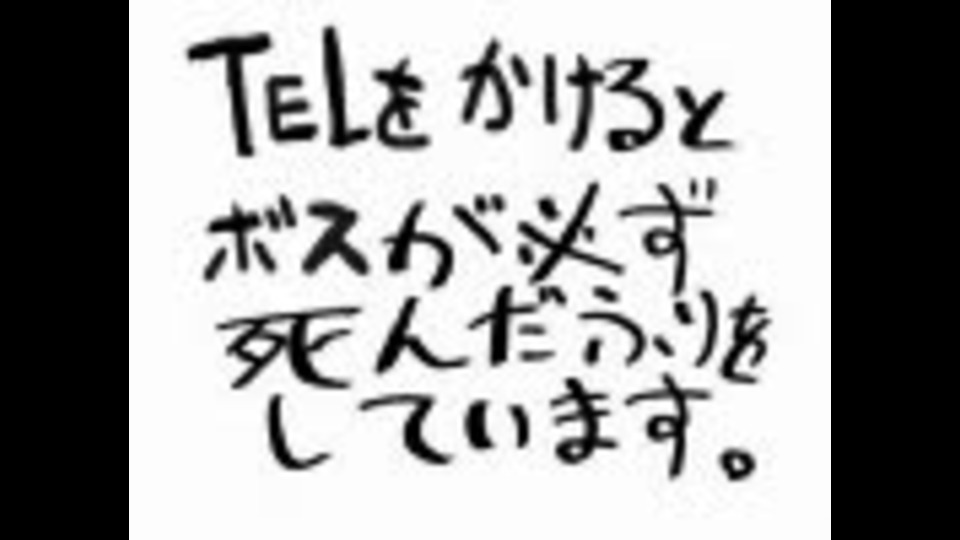 TELをかけると
ボスが必ず
死んだふりを
しています。